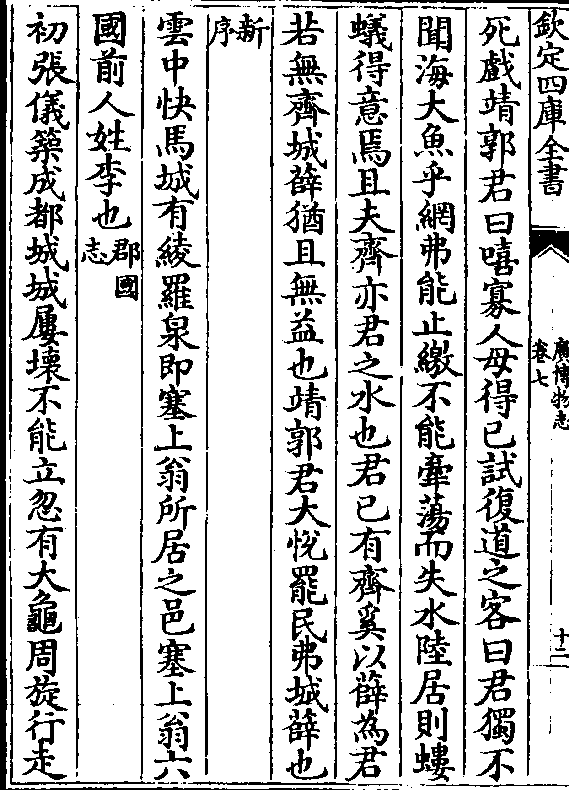 欽定四庫全書
廣博物志
卷七
十二
死戲靖郭君曰嘻寡人毋得已試復道之客曰君獨不
聞海大魚乎網弗能止繳不能牽蕩而失水陸居則螻
蟻得意焉且夫齊亦君之水也君已有齊奚以薛為君
若無齊城薛猶且無益也靖郭君大悅罷民弗城薛也
新序
雲中快馬城有綾羅泉即塞上翁所居之邑塞上翁六
國前人姓李也郡國志
初張儀築成都城城屢壞不能立忽有大龜周旋行走